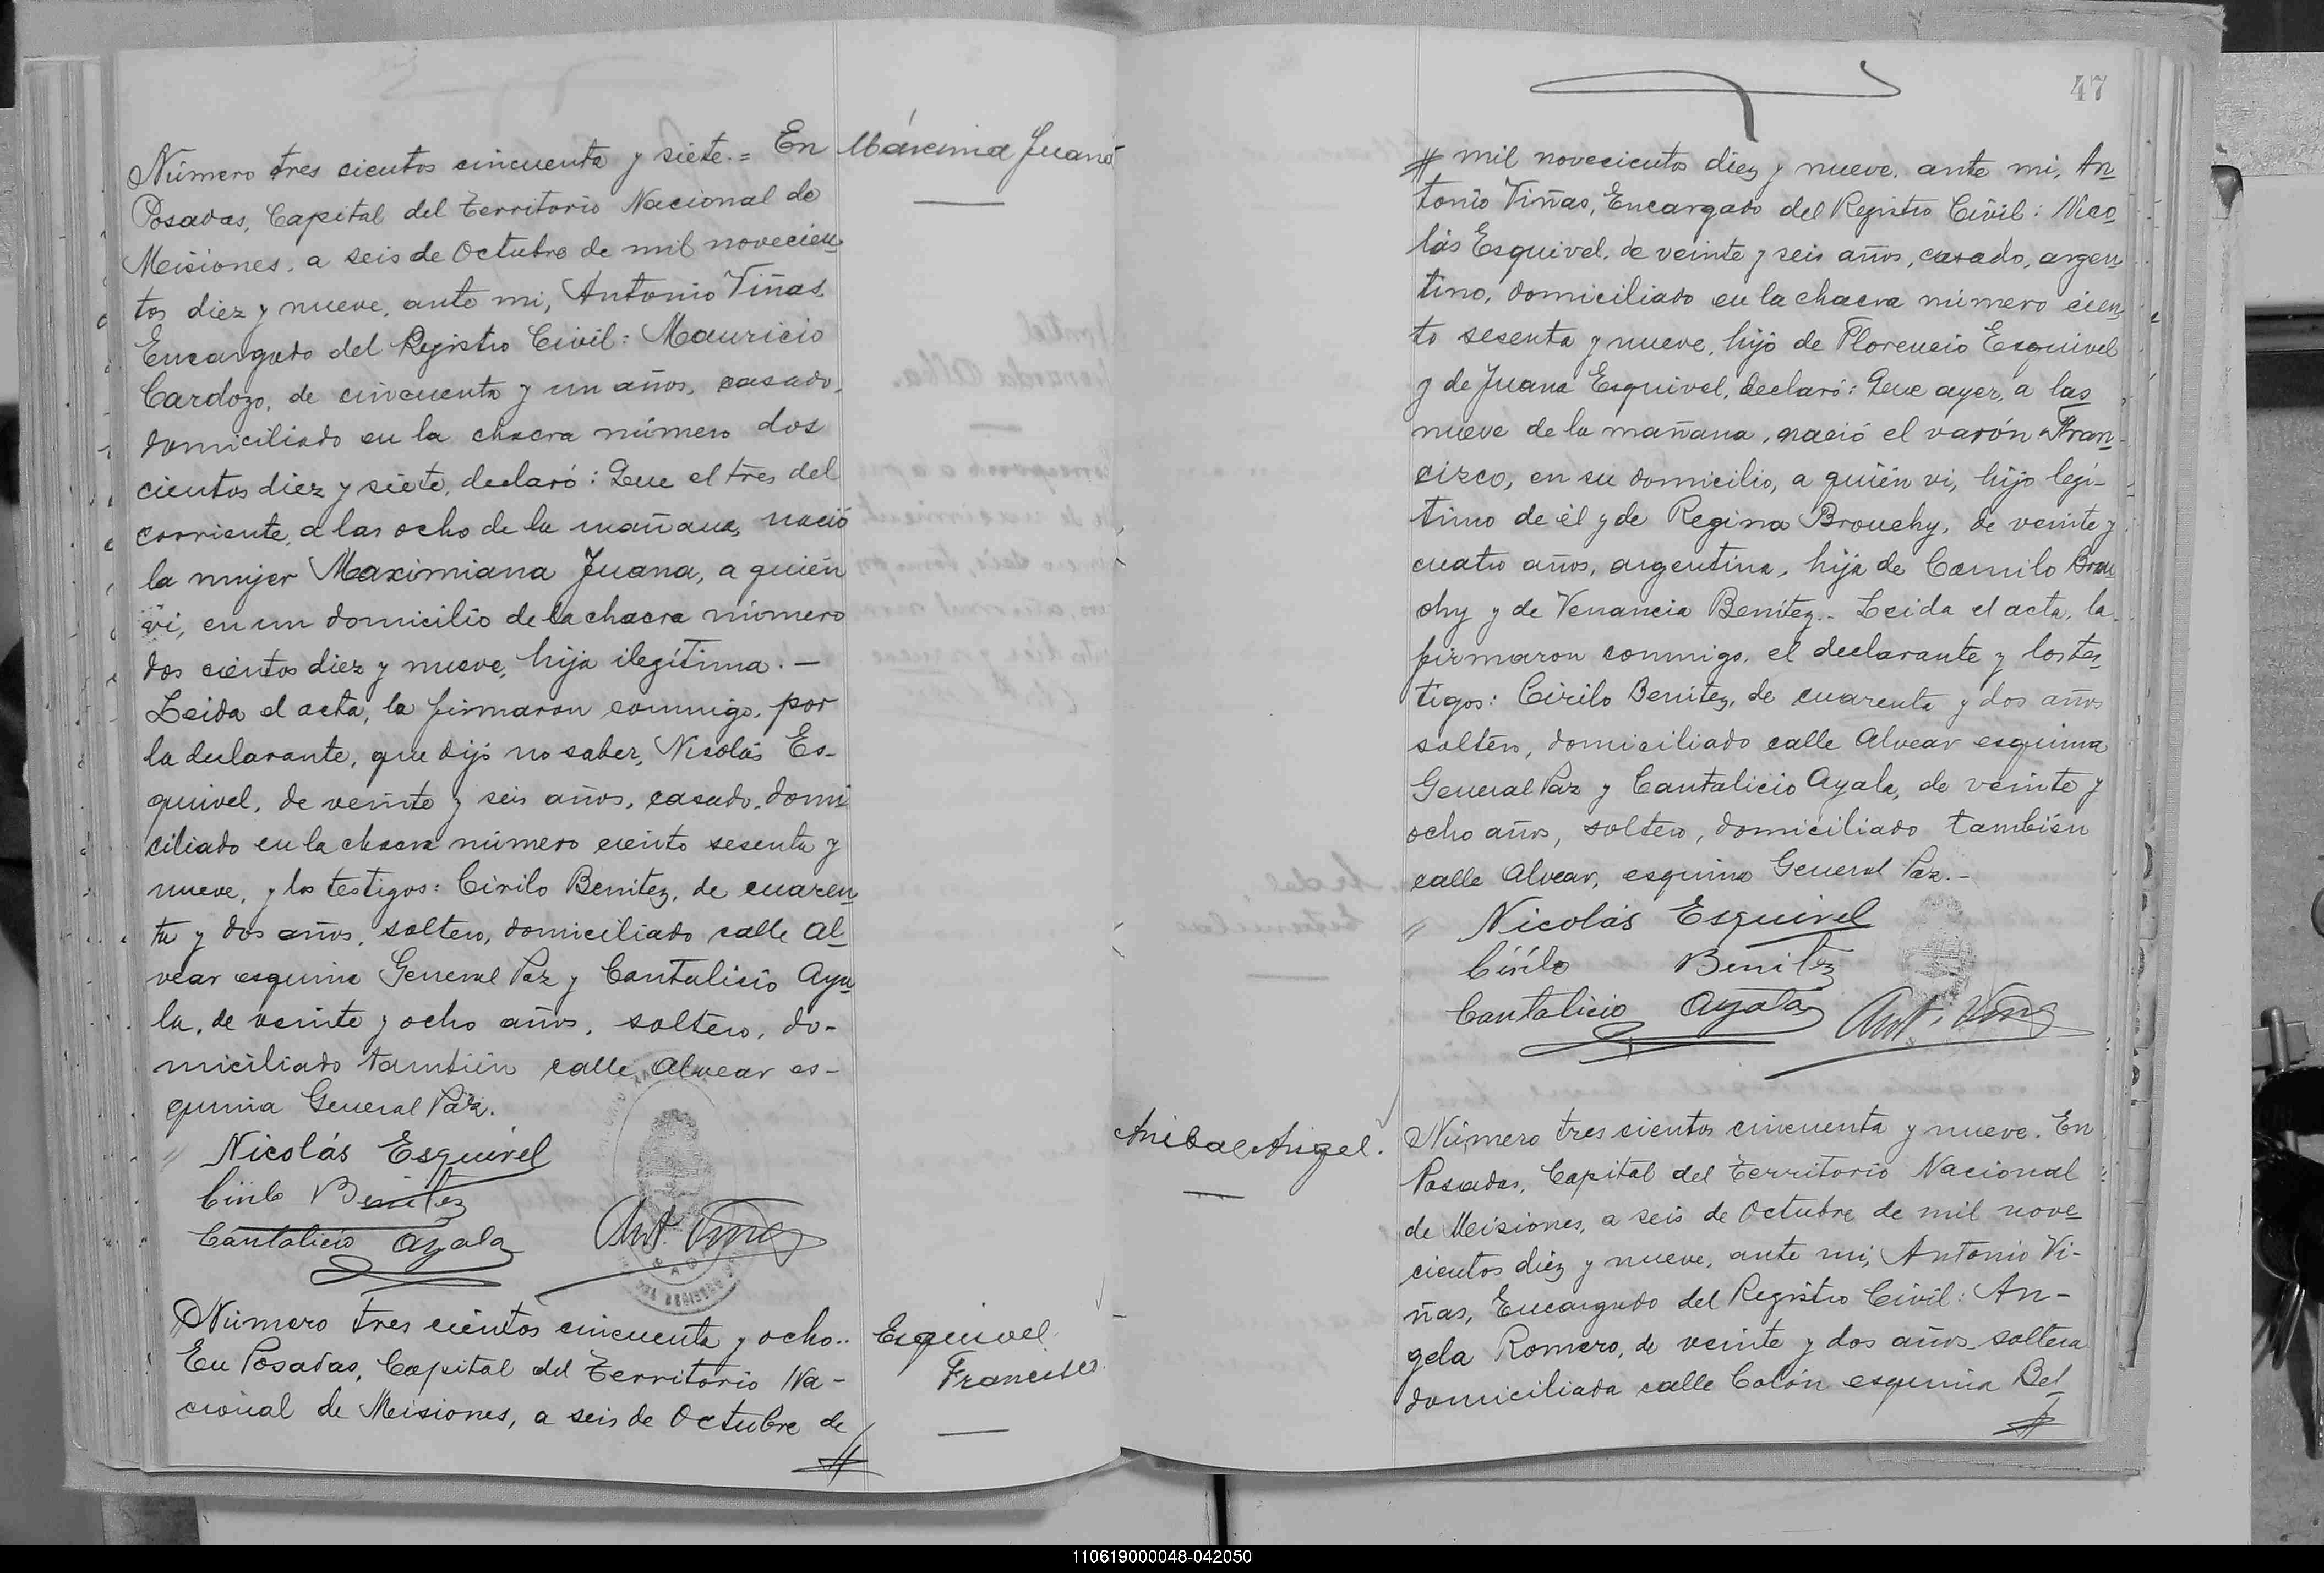 Número tres cientos cincuenta y siete.= En
Posadas, Capital del Territorio Nacional de
Misiones, a seis de Octubre de mil novecien
tos diez y nueve, ante mi, Antonio Viñas
Encargado del Registro Civil: Mauricio
Cardozo, de cincuenta y un años, casado,
domiciliado en la chacra número dos
cientos diez y siete, declaró: Que el tres del
corriente, a las ocho de la mañana, nació
la mujer Maximiana Juana, a quién
vi, en un domicilio de la chacra número
dos cientos diez y nueve, hija ilegítima.—
Leida el acta, la firmaron conmigo, por
la declarante, que dijo no saber, Nicolás Es-
quivel, de veinte y seis años, casado, domi
ciliado en la chacra número ciento sesenta y
nueve, y los testigos: Cirilo Benitez, de cuaren
ta y dos años, soltero, domiciliado calle Al
vear esquina General Paz y Cantalicio Aya
la, de veinte y ocho años, soltero, do-
miciliado también calle Alvear es-
quina General Paz.
Nicolás Esquivel
Cirilo Benitez
Cantalicio Ayala
Ant. Viñas
Máxima Juana
Número tres cientos cincuenta y ocho..
En Posadas, Capital del Territorio Na-
cional de Misiones, a seis de Octubre de
#
Esquivel
Francisco
47
# mil novecientos diez y nueve, ante mi, An
tonio Viñas, Encargado del Registro Civil: Nico
lás Esquivel, de veinte y seis años, casado, argen
tino, domiciliado en la chacra número cien
to sesenta y nueve, hijo de Florencio Esquivel
y de Juana Esquivel, declaró: Que ayer, a las
nueve de la mañana, nació el varón Fran-
cisco, en su domicilio, a quién vi, hijo legi-
timo de él y de Regina Brouchy, de veinte y
cuatro años, argentina, hija de Camilo Brou
chy y de Venancia Benítez.- Leida el acta, la
firmaron conmigo, el declarante y los tes
tigos: Cirilo Benitez, de cuarenta y dos años
soltero, domiciliado calle Alvear esquina
General Paz y Cantalicio Ayala, de veinte y
ocho años, soltero, domiciliado también
calle Alvear, esquina General Paz.-
Nicolás Esquivel
Cirilo Benitez
Cantalicio Ayala
Ant. Viñas
Anibal Angel.
Número tres cientos cincuenta y nueve. En
Posadas, Capital del Territorio Nacional
de Misiones, a seis de Octubre de mil nove
cientos diez y nueve, ante mi, Antonio Vi-
ñas, Encargado del Registro Civil: An-
gela Romero, de veinte y dos años soltera
domiciliada calle Colón esquina Bel
#
110619000048-042050